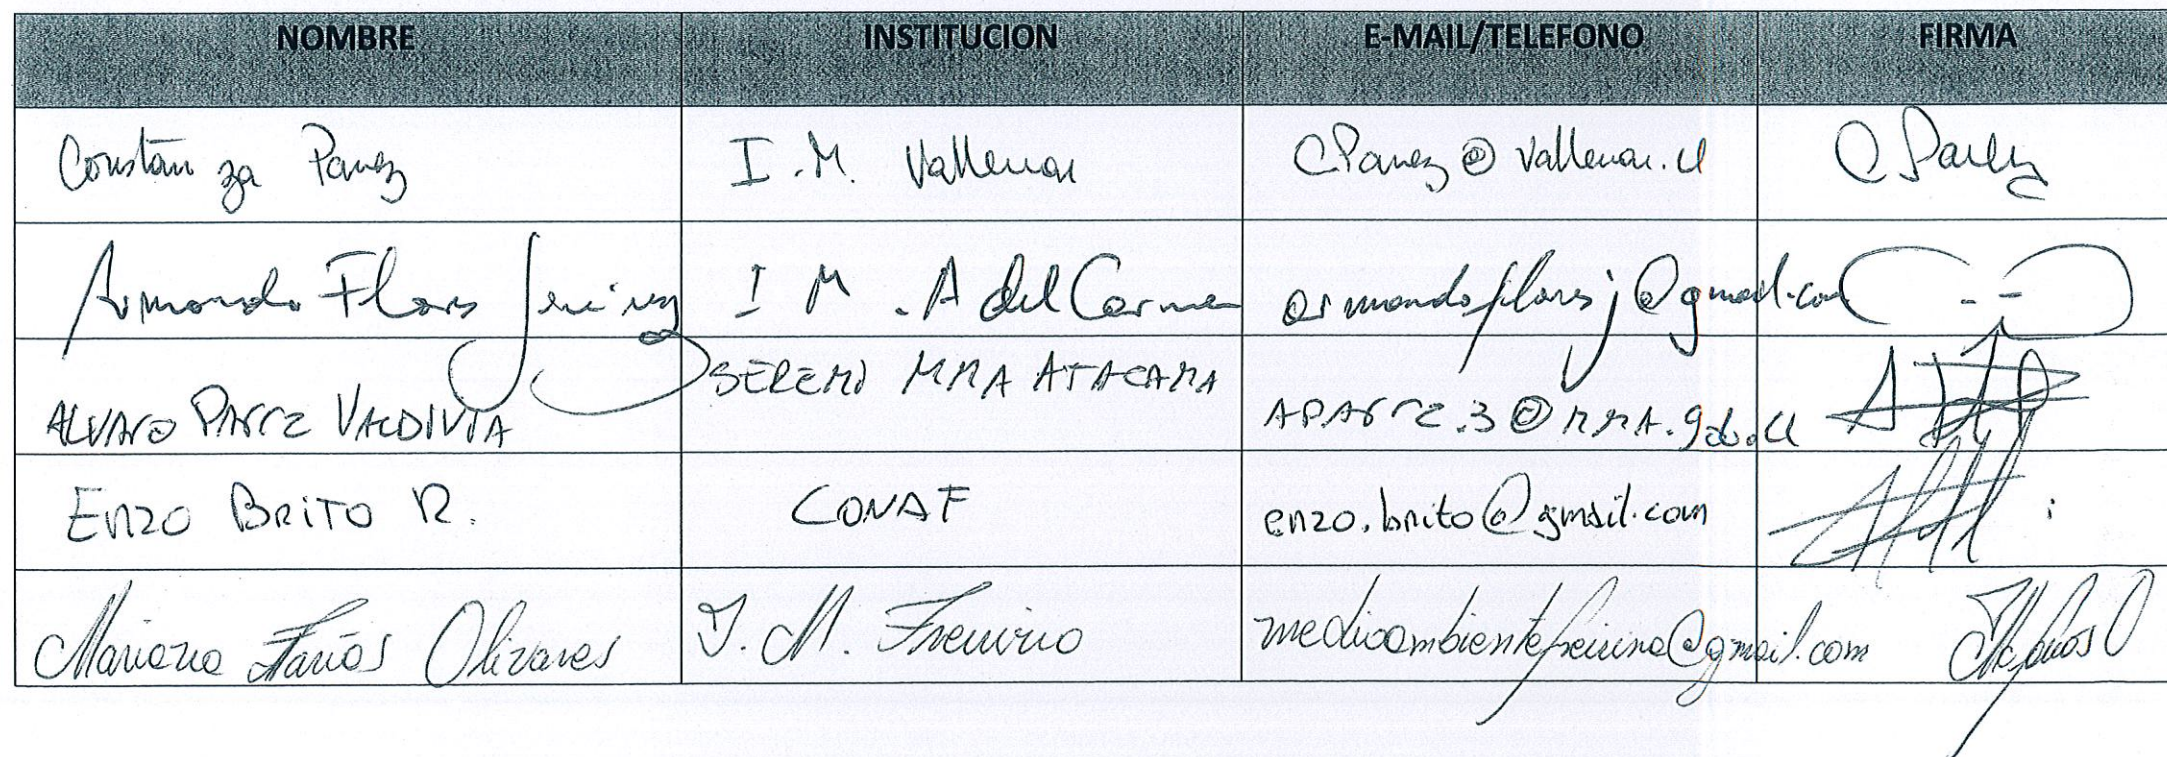 NOMBRE INSTITUCION E-MAIL/TELEFONO FIRMA
Constanza Panez I.M. Vallenar CPanez@vallenar.cl C Panez
Armando Flores Jiménez I M. A del Carmen armandofloresj@gmail.com
ALVARO VALDIVIA SEREMI MMA ATACAMA
ENZO BRITO R. CONAF enzo.brito@gmail.com
Mariana Farías Olivares I. M. Freirina medioambientefreirina@gmail.com